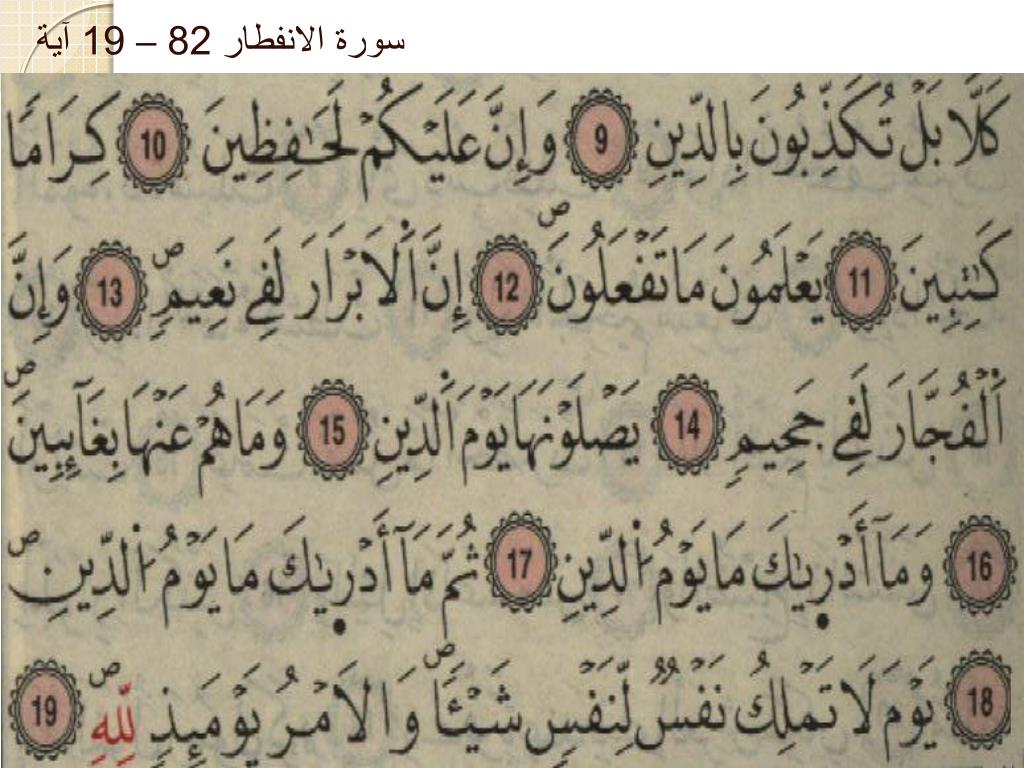 سورة الانفطار 82 – 19 آية
كَلَّا بَلْ تُكَذِّبُونَ بِالدِّينِ 9 وَإِنَّ عَلَيْكُمْ لَحَٰفِظِينَ 10 كِرَامٗا
كَٰتِبِينَ 11 يَعْلَمُونَ مَا تَفْعَلُونَۖ 12 إِنَّ اَ۬لَابْرَارَ لَفِے نَعِيمٖۖ 13 وَإِنَّ
اَ۬لْفُجَّارَ لَفِے جَحِيمٖ 14 يَصْلَوْنَهَا يَوْمَ اَ۬لدِّينِ 15 وَمَا هُمْ عَنْهَا بِغَآئِبِينَۖ
16 وَمَآ أَدْر۪ىٰكَ مَا يَوْمُ اُ۬لدِّينِ 17 ثُمَّ مَآ أَدْر۪ىٰكَ مَا يَوْمُ اُ۬لدِّينِۖ
18 يَوْمَ لَا تَمْلِكُ نَفْسٞ لِّنَفْسٖ شَيْـٔٗاۖ وَالَامْرُ يَوْمَئِذٖ لِّلهِۖ 19